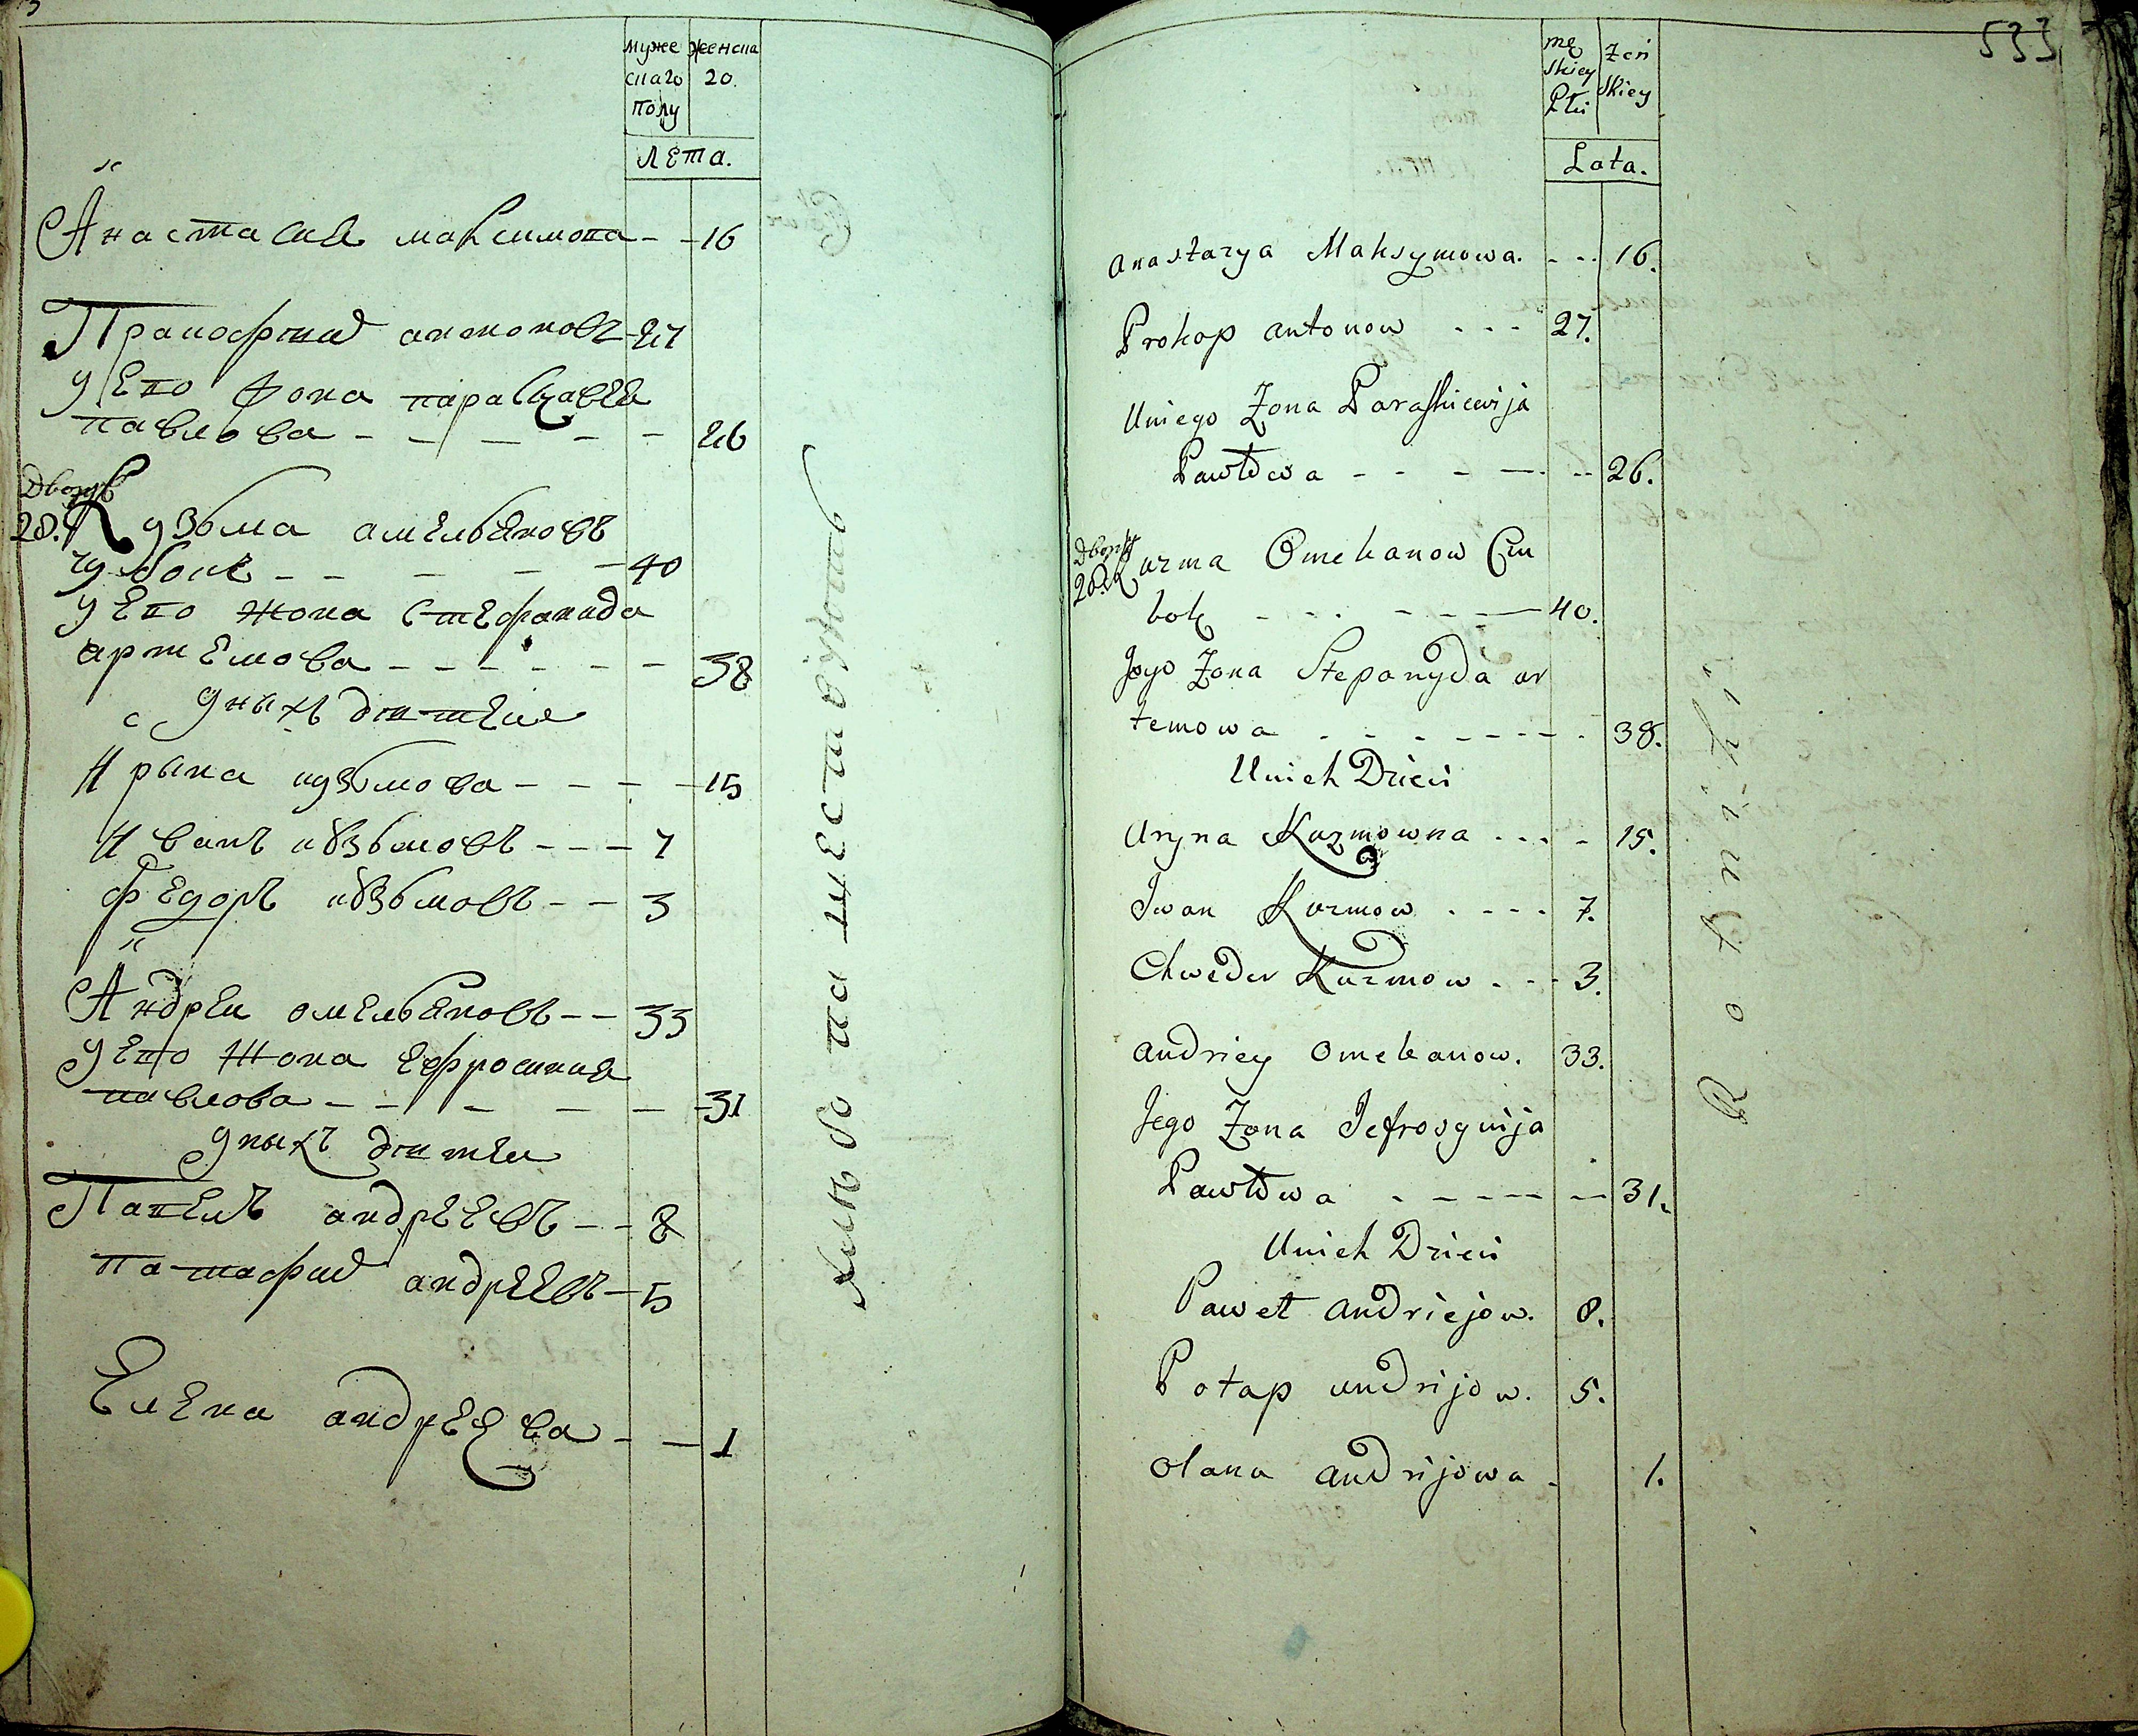 муже
скаго
полу
женска
20.
лета.
Анастасия максимова - - 16
Прокофий антоновъ - 27
у его жона параскавея
павлова - - - - - 26
Дворъ
28. Кузьма амельяновъ
чубокъ - - - - - 40
у его жона стефанида
артемова - - - - - - 38
у ныхъ дитей
Ирына кузьмова - - - - 15
Иванъ кузьмовъ - - - 7
Федоръ кузьмовъ - - 3
Андрей омельяновъ - - 33
у его жона ефросиния
павлова - - - - - - 31
у ныхъ дитеи
Павелъ андреевъ - - 8
патафий андреевъ - 5
Елена андреева - - 1
533
mę
skiey
Płci
żeń
skiey
Lata.
Anastazya Maksymowa. - - - 16.
Prokop Antonow - - - 27.
Uniego Żona Paraskiewija
Pawłowa - - - - - - 26.
Дворъ
28. Kuzma Omelanow Czu
bok - - - - - - 40.
Jego Żona Stepanyda ar
temowa - - - - - - - 38.
Unich Dzieci
Uryna Kuzmowna - - - - 15.
Iwan Kuzmow - - - - 7.
Chwedor Kuzmow - - - 3.
Andriey Omelanow. 33.
Jego Żona Jefrosynija
Pawłowa - - - - - - 31.
Unich Dzieci
Paweł Andriejow. 8.
Potap Andrijow. 5.
Olana Andrijowa - 1.